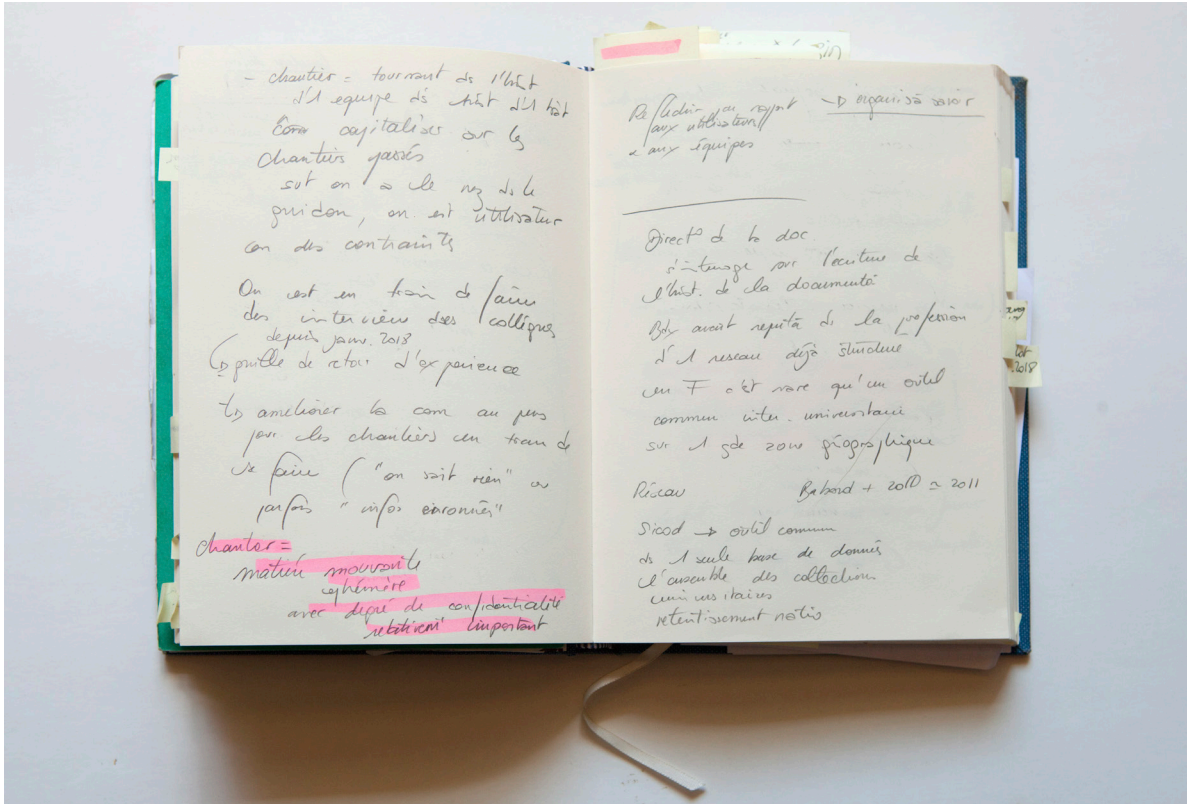 - chantier = tournant ds l'hist
d'1 equipe ds hist d'1
Com capitaliser sur les
chantiers passés
on a le nez ds le
guidon, on est utilisateur
on des contraints
On est en train de faire
des interview des collègues
depuis janv. 2018
grille de retour d'experience
↳ ameliorer la com au
pour les chantiers en train de
se faire ("on sait rien" ou
parfois "infos erronnées"
chantier =
matière mouvante
ephémère
avec degré de confidentialité
relativem^t important
Reflechir par rapport
aux utilisateurs
& aux équipes
→ organisa savoir
Direct° de la doc
s'interroge sur l'ecriture de
l'hist. de la documenta°
Bdx avait reputa° ds la profession
d'1 reseau déjà structuré
en F c'est rare qu'un outil
commun inter-universitaire
sur 1 gde zone géographique
Réseau
Babord + 2010 ≃ 2011
Sicod → outil commun
ds 1 seule base de données
l'ensemble des collections
universitaires
retentissement natio
2018